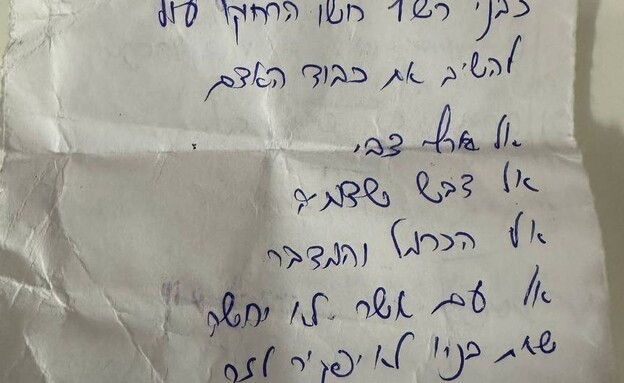 כבני רשף חשו הרחיקו עוף
להשיב את כבוד האדם
אל ארץ צבי,
אל דבש שדותיה
אל הכרמל והמדבר
אל עם אשר לא יחשה
שאת בניו לא יפקיר לזר